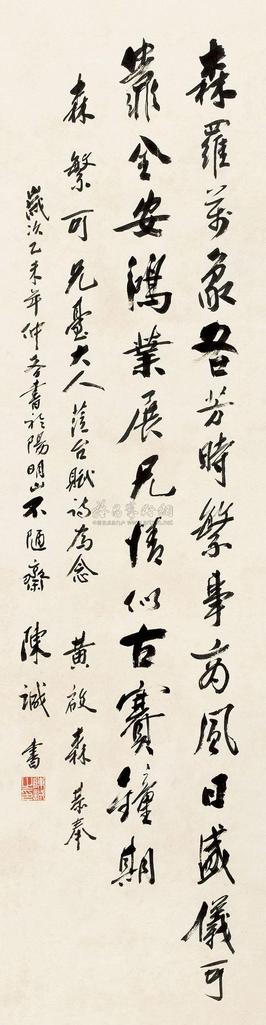 森羅萬象君芳時繁事商風日盛儀可
靠全安鴻業展兄情似古賽鍾期
森繁可兄臺大人蒞台賦詩為念 黃啟森恭奉
歲次乙未年仲春書於陽明山不陋齋 陳誠 書